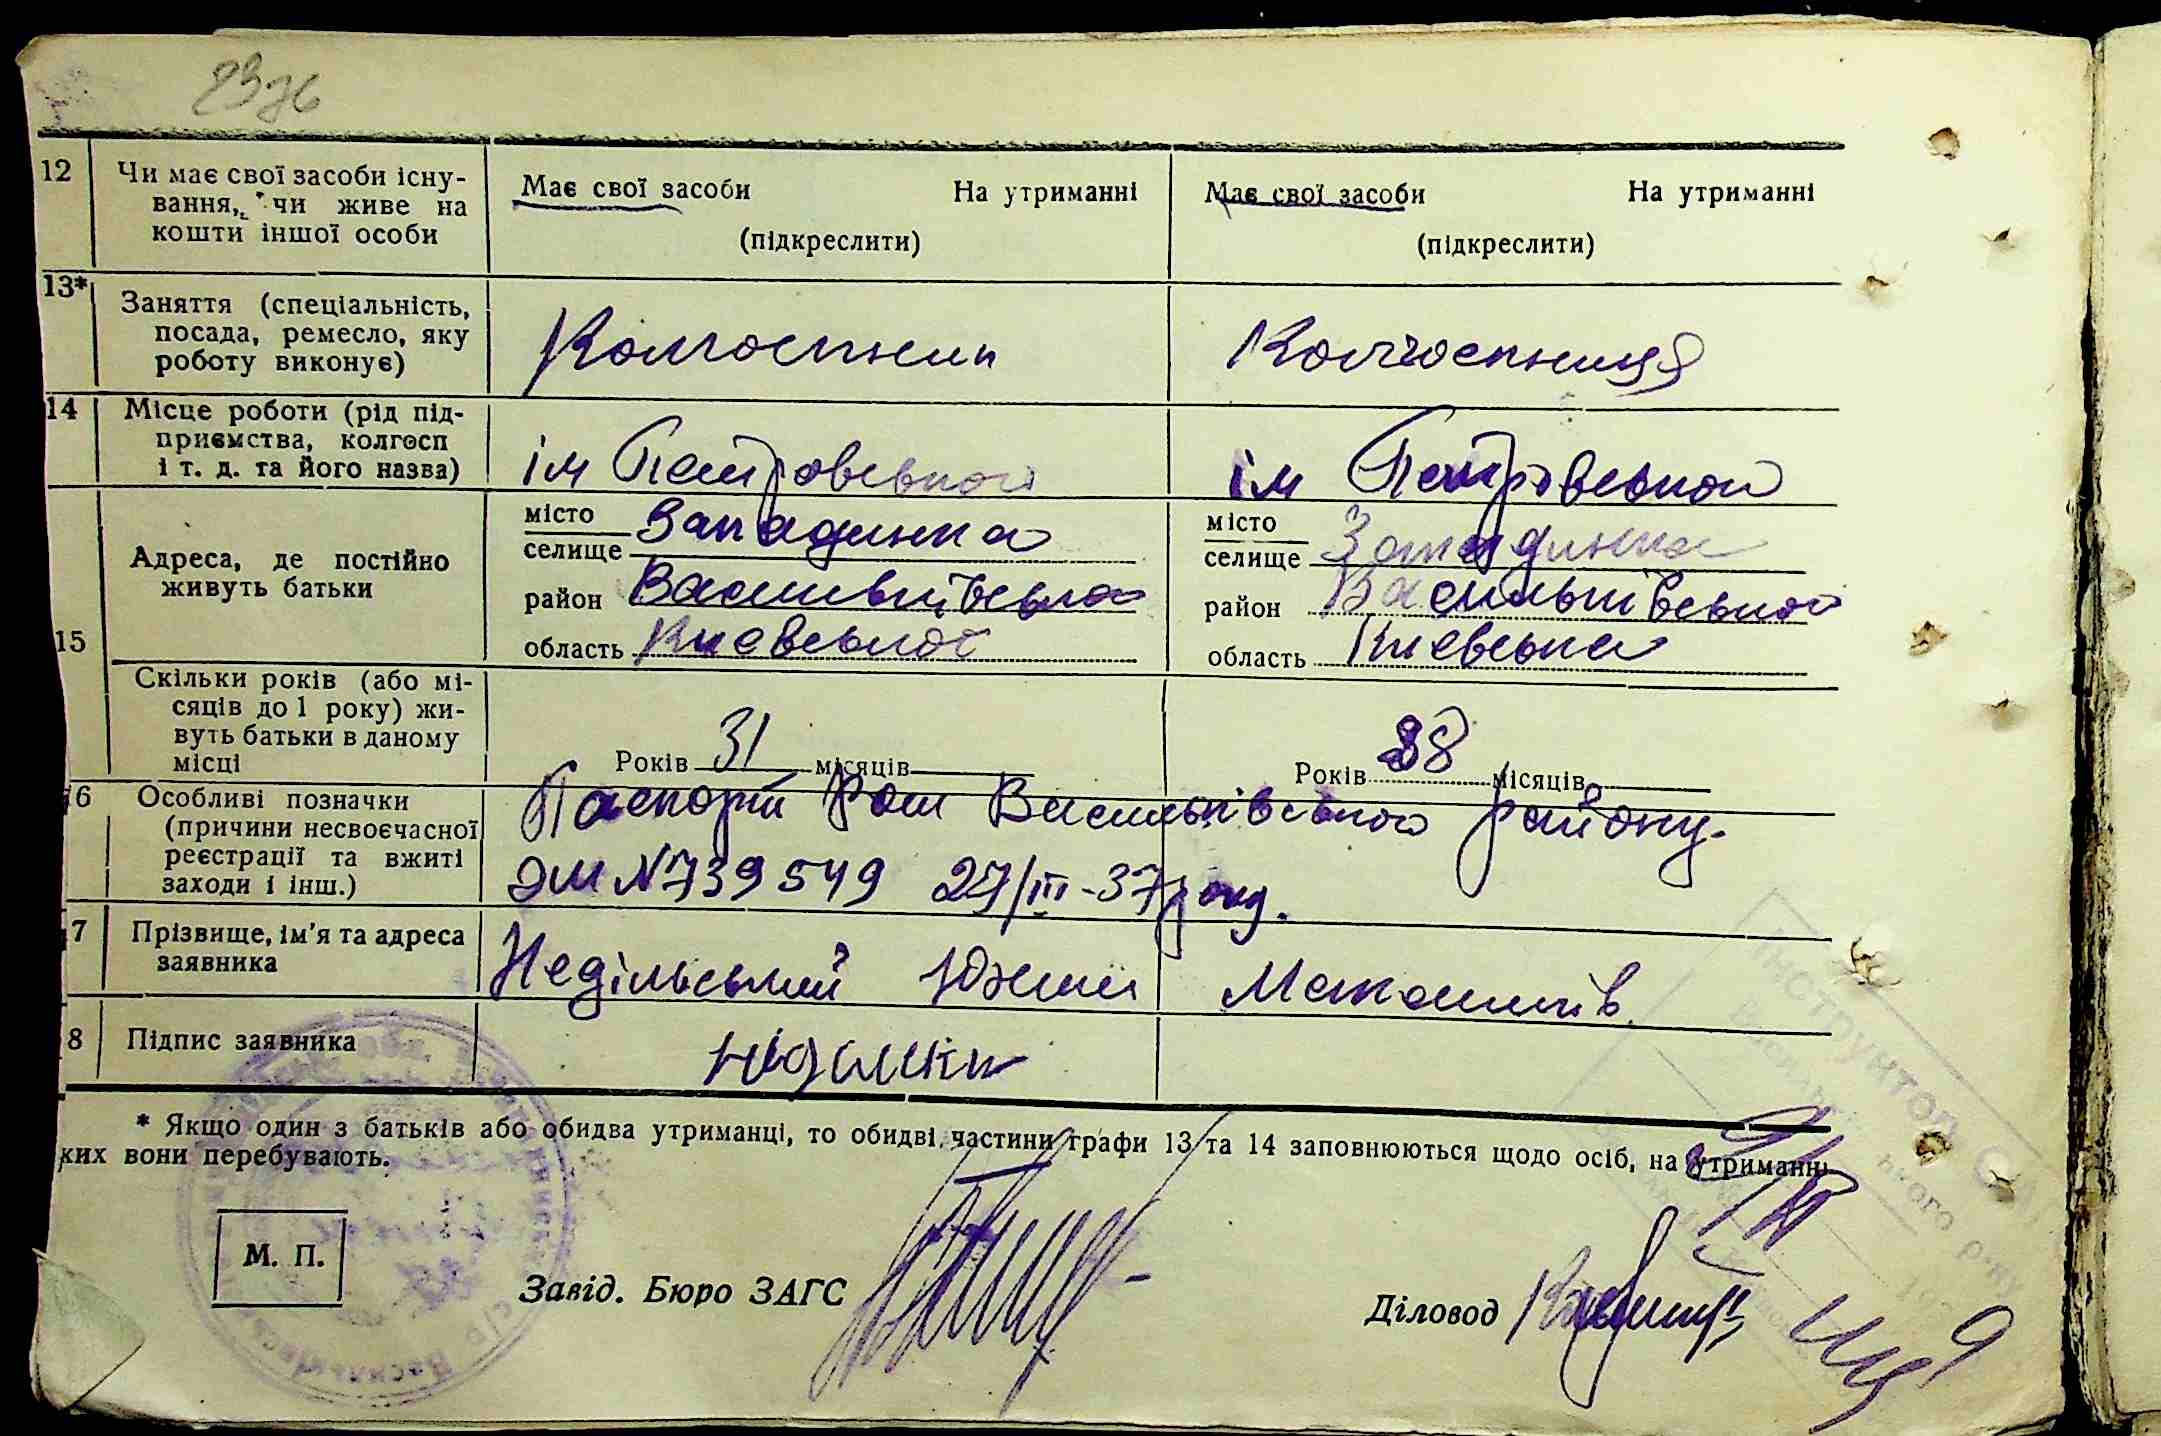 12 Чи має свої засоби існу-
вання, чи живе на
кошти іншої особи
Має свої засоби На утриманні
(підкреслити)
Має свої засоби На утриманні
(підкреслити)
13* Заняття (спеціальність,
посада, ремесло, яку
роботу виконує)
Колгоспник
Колгоспниця
14 Місце роботи (рід під-
приємства, колгосп
і т. д. та його назва)
ім Петровського
ім Петровського
15
Адреса, де постійно
живуть батьки
місто
селище Западинка
район Васильківська
область Київської
місто
селище Западинка
район Васильківської
область Київська
Скільки років (або мі-
сяців до 1 року) жи-
вуть батьки в даному
місці
Років 31 місяців
Років 38 місяців
16 Особливі позначки
(причини несвоєчасної
реєстрації та вжиті
заходи і інш.)
Паспорт Васильківського району.
ЭМ №739549 27/III-37 року.
17 Прізвище, ім'я та адреса
заявника
Недільський
18 Підпис заявника
* Якщо один з батьків або обидва утриманці, то обидві частини графи 13 та 14 заповнюються щодо осіб, на утриманні
яких вони перебувають.
М. П.
Завід. Бюро ЗАГС
Діловод